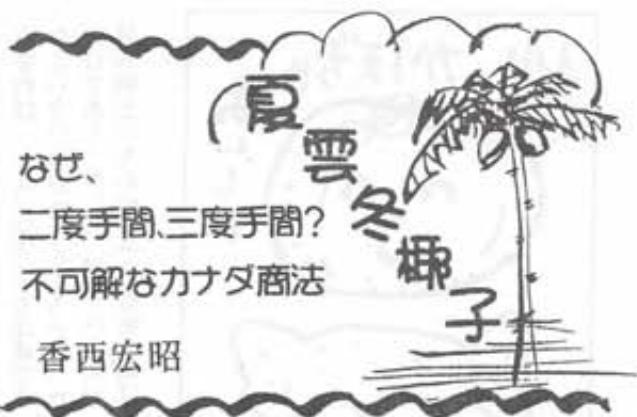 夏雲冬椰子
なぜ、
二度手間、三度手間?
不可解なカナダ商法
香西宏昭